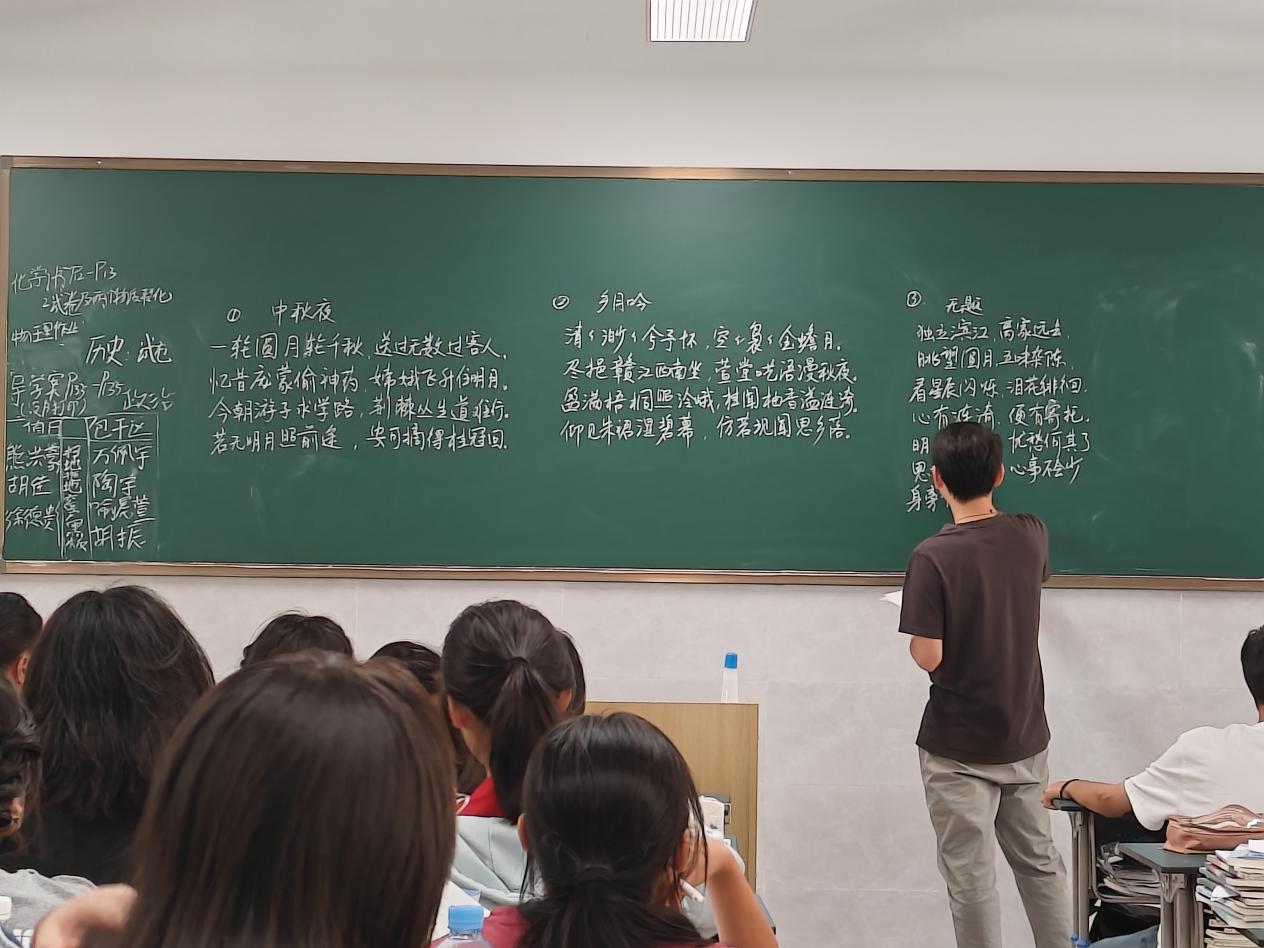 化学作P2-P13
2试卷及两个物质转化
物理作业
历史:试卷
导学案P33-P35
政治
值日 包干区
熊洪 扫地 万佩宇
胡佳 拖地 陶宇
徐德贵 黑板 喻晨萱
胡振
① 中秋夜
一轮圆月轮千秋,送过无数过客人。
忆昔 蒙偷神药,嫦娥飞升伯明月。
今朝游子求学路,荆棘丛生道难行。
若无明月照前途,安可摘得桂冠回。
② 乡月吟
清々渺々兮予怀,空々袅々金蟾月。
尽挹赣江西南坐,萱堂咣语漫秋夜。
盈满梧桐照泠娥,桂闻柚香溢涟漪。
仰见朱裙湿碧幕,仿若观闻思乡蓓。
③ 无题
独立滨江,离家远去,
眺望圆月,五味杂陈,
看星辰闪烁,泪花徘徊
心有涟漪,便有寄托。
明 忧愁何其了
思 心事不会少
身旁